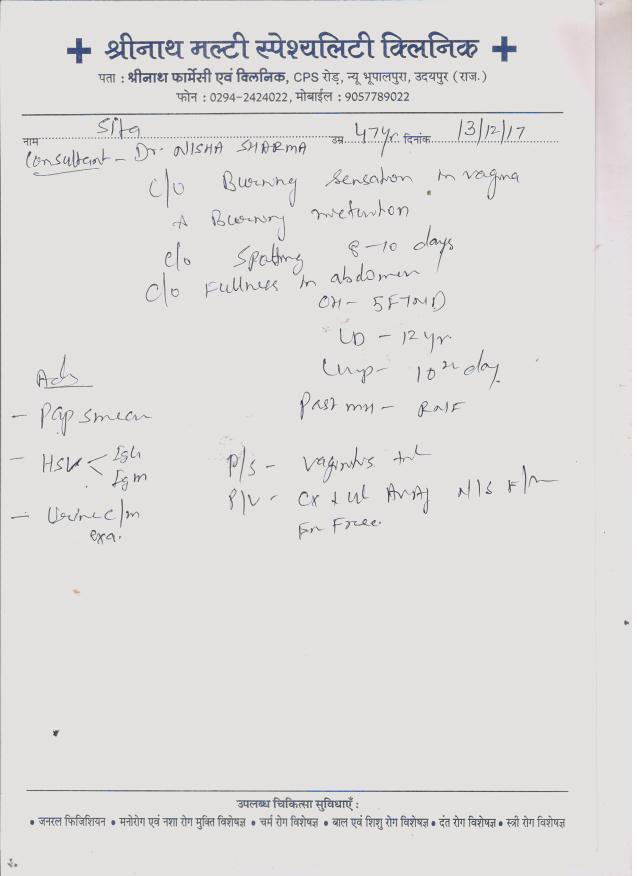 श्रीनाथ मल्टी स्पेश्यलिटी क्लिनिक
पता : श्रीनाथ फार्मेसी एवं क्लिनिक, CPS रोड़, न्यू भूपालपुरा, उदयपुर (राज.)
फोन : 0294-2424022, मोबाईल : 9057789022
नाम Sita उम्र 47yr दिनांक 13/12/17
Consultant - Dr. NISHA SHARMA
c/o Burning sensation in vagina
Burning
c/o Spotting 8-10 days
c/o Fullness in abdomen
OH - 5FTND
LD - 12 yr.
Lmp - 10th day
Adv
- Pap smear
Past MH - R
- HSV < IgG
IgM
P/S - vaginitis
P/V - Cx
Fn Free.
- Urine c/m
exa.
उपलब्ध चिकित्सा सुविधाएँ :
• जनरल फिजिशियन • मनोरोग एवं नशा रोग मुक्ति विशेषज्ञ • चर्म रोग विशेषज्ञ • बाल एवं शिशु रोग विशेषज्ञ • दंत रोग विशेषज्ञ • स्त्री रोग विशेषज्ञ